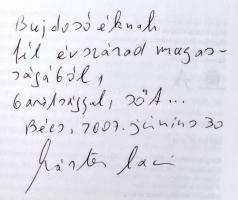 Bujdosóéknak
fél évszázad magas-
ságából,
barátsággal, sőt...
Bécs, 2007. június 30
Márton Laci